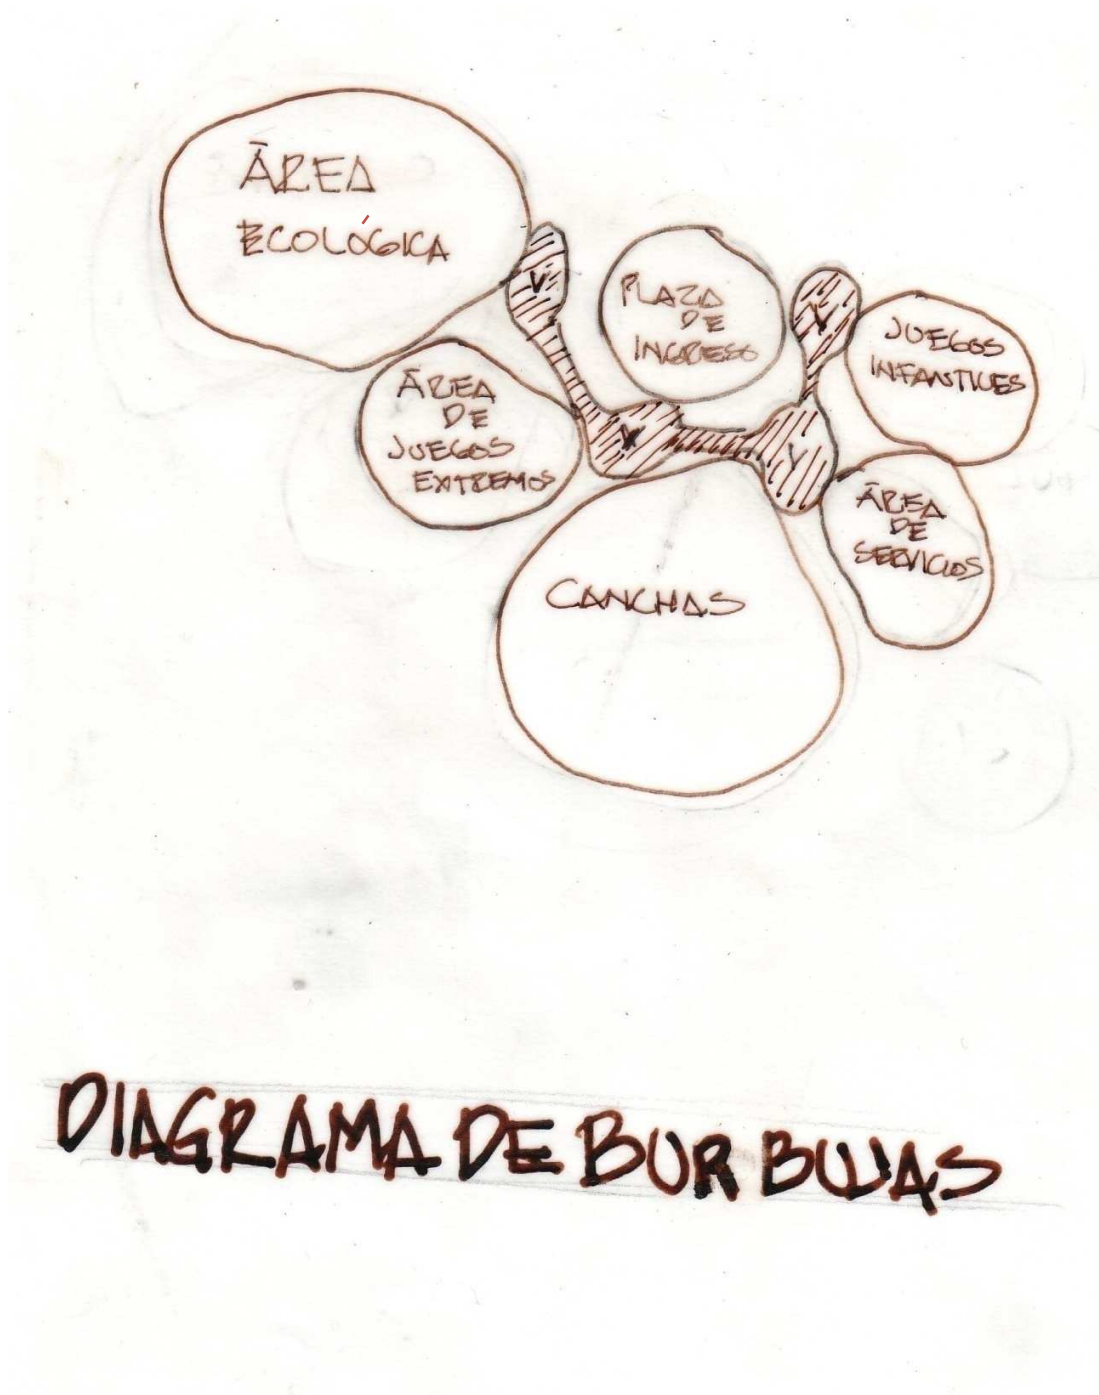 ÁREA
ECOLÓGICA
V
PLAZA
DE
INGRESO
V
JUEGOS
INFANTILES
ÁREA
DE
JUEGOS
EXTREMOS
X
Y
ÁREA
DE
SERVICIOS
CANCHAS
DIAGRAMA DE BURBUJAS